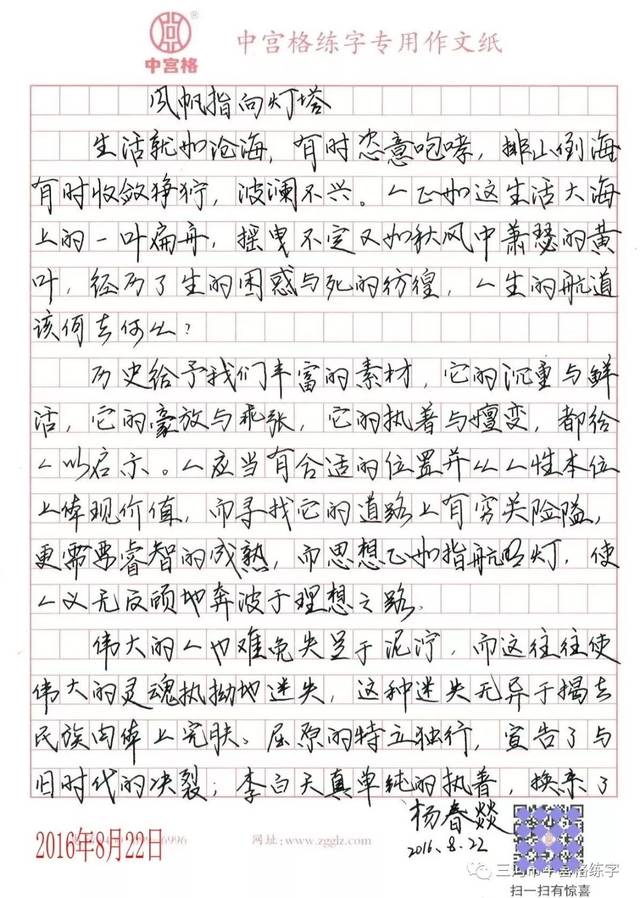 中宫格
中宫格练字专用作文纸
风帆指向灯塔
生活就如沧海，有时恣意咆哮，排山倒海
有时收敛狰狞，波澜不兴。人正如这生活大海
上的一叶扁舟，摇曳不定又如秋风中萧瑟的黄
叶，经历了生的困惑与死的彷徨，人生的航道
该何去何从？
历史给予我们丰富的素材，它的沉重与鲜
活，它的豪放与乖张，它的执着与嬗变，都给
人以启示。人应当有合适的位置并从人性本位
上体现价值，而寻找它的道路上有穷关险隘，
更需要睿智的成熟，而思想正如指航明灯，使
人义无反顾地奔波于理想之路。
伟大的人也难免失足于泥泞，而这往往使
伟大的灵魂执拗地迷失，这种迷失无异于揭去
民族肉体上完肤。屈原的特立独行，宣告了与
旧时代的决裂；李白天真单纯的执着，换来了
杨春燚
2016.8.22
2016年8月22日
6996
网址:www.zgglz.com
三河市中宫格练字
扫一扫有惊喜